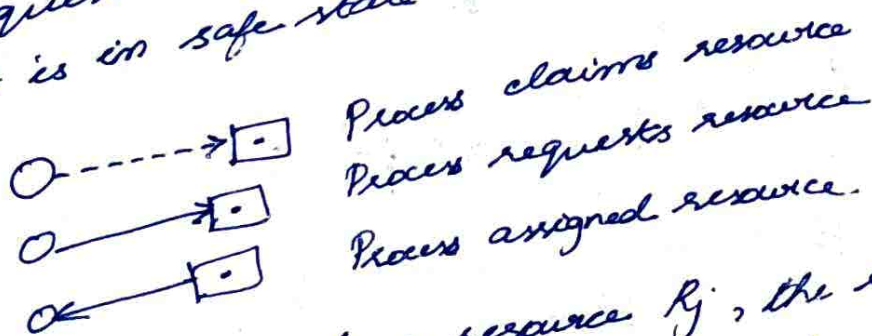 is in safe state
Process claims resource
Process requests resource
Process assigned resource.
resource Rj, the